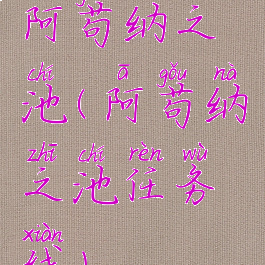 阿苟纳之
chí ā gǒu nà
池(阿苟纳
zhī chí rèn wù
之池任务
xiàn
线)